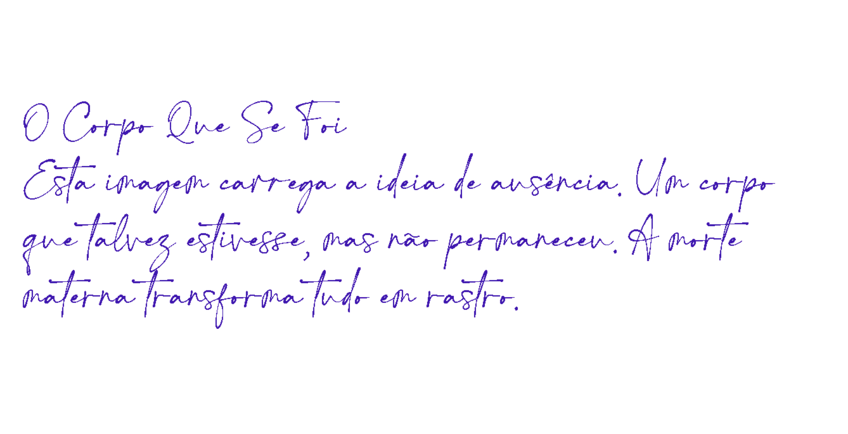 O Corpo Que Se Foi
Esta imagem carrega a ideia de ausência. Um corpo
que talvez estivesse, mas não permaneceu. A morte
materna transforma tudo em rastro.